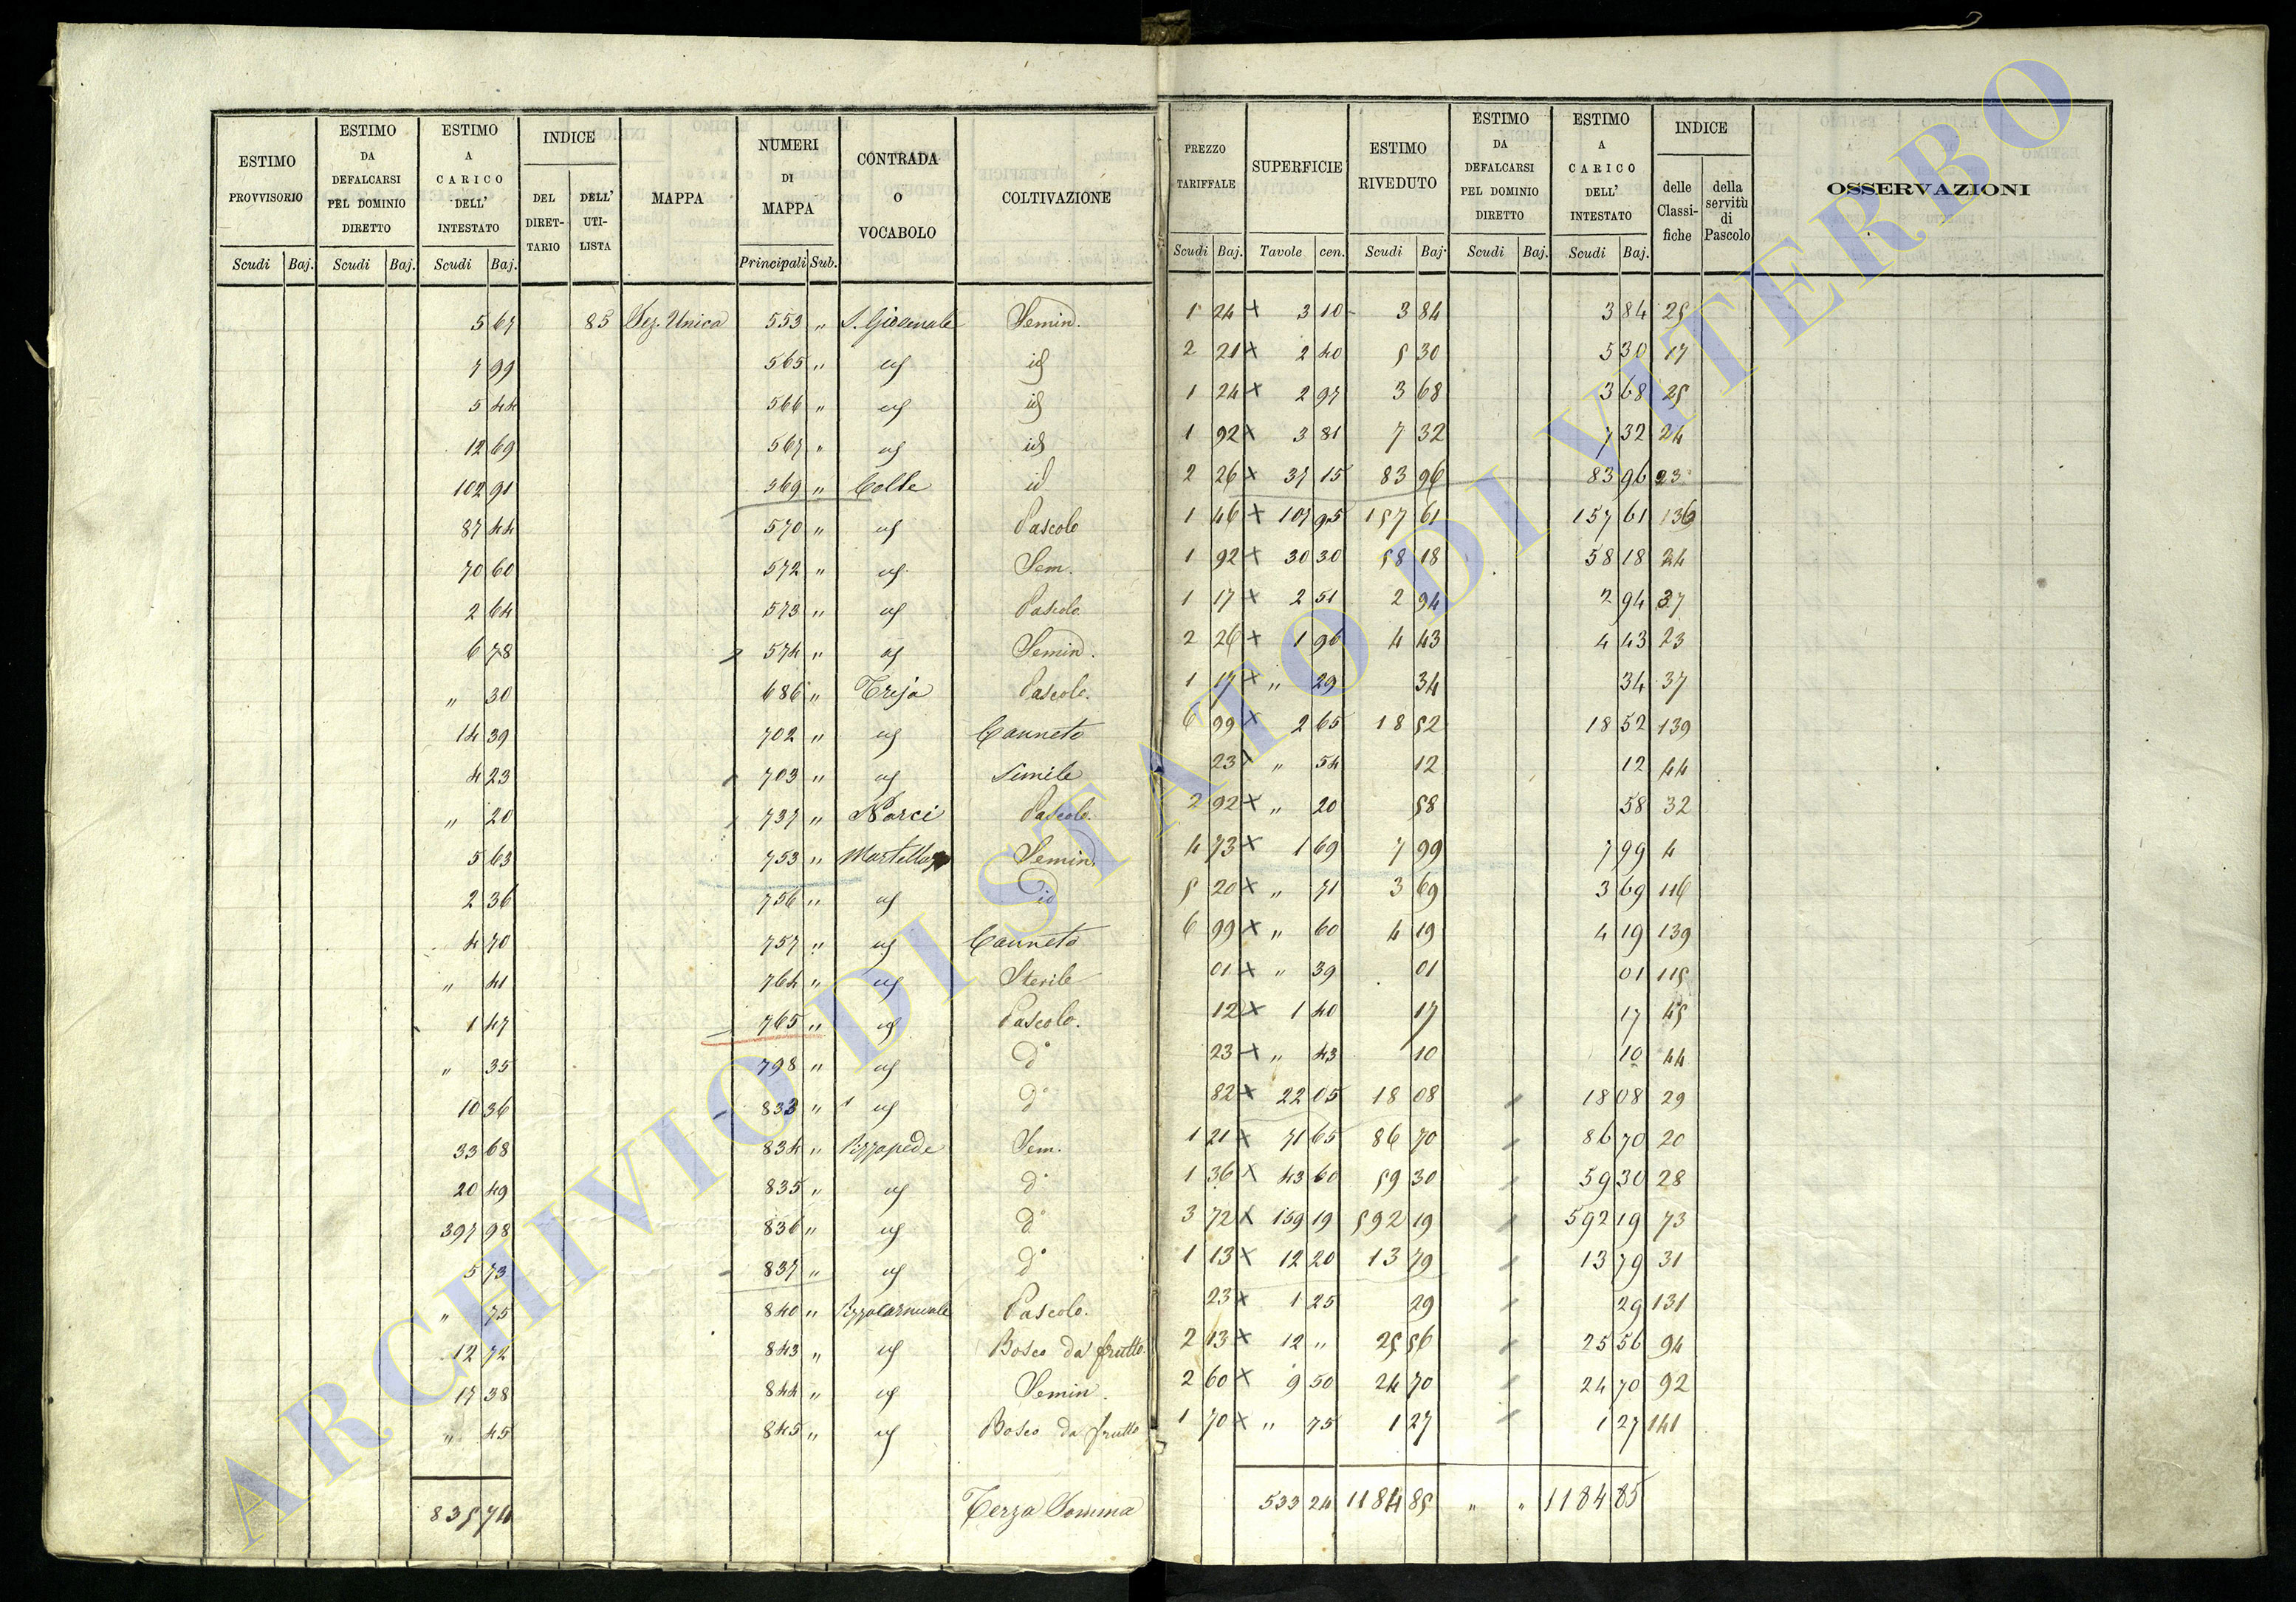 ESTIMO PROVVISORIO Scudi Baj. | ESTIMO DA DEFALCARSI PEL DOMINIO DIRETTO Scudi Baj. | ESTIMO A CARICO DELL' INTESTATO Scudi Baj. | INDICE DEL DIRETTARIO | DELL' UTILISTA | MAPPA | NUMERI DI MAPPA Principali Sub. | CONTRADA O VOCABOLO | COLTIVAZIONE | PREZZO TARIFFALE Scudi Baj. | SUPERFICIE Tavole cen. | ESTIMO RIVEDUTO Scudi Baj. | ESTIMO DA DEFALCARSI PEL DOMINIO DIRETTO Scudi Baj. | ESTIMO A CARICO DELL' INTESTATO Scudi Baj. | INDICE delle Classifiche | della servitù di Pascolo | OSSERVAZIONI
5 67 | 85 | Sez. Unica | 553 " | S. Giovenale | Semin. | 1 24 x | 3 10 | 3 84 | 3 84 | 25
7 99 | 565 " | id | id | 2 21 x | 2 40 | 5 30 | 5 30 | 17
5 44 | 566 " | id | id | 1 24 x | 2 97 | 3 68 | 3 68 | 25
12 69 | 567 " | id | id | 1 92 x | 3 81 | 7 32 | 7 32 | 24
102 91 | 569 " | Colle | id | 2 26 x | 37 15 | 83 96 | 83 96 | 23
87 44 | 570 " | id | Pascolo | 1 46 x | 107 95 | 157 61 | 157 61 | 136
70 60 | 572 " | id | Sem. | 1 92 x | 30 30 | 58 18 | 58 18 | 24
2 64 | 573 " | id | Pascolo | 1 17 x | 2 51 | 2 94 | 2 94 | 37
6 78 | 574 " | id | Semin. | 2 26 x | 1 96 | 4 43 | 4 43 | 23
" 30 | 686 " | Treja | Pascolo. | 1 17 x | " 29 | 34 | 34 | 37
14 39 | 702 " | id | Canneto | 6 99 x | 2 65 | 18 52 | 18 52 | 139
4 23 | 703 " | id | Simile | 23 x | " 54 | 12 | 12 | 44
" 20 | 737 " | Narci | Pascolo. | 2 92 x | " 20 | 58 | 58 | 32
5 63 | 753 " | Semin. | 4 73 x | 1 69 | 7 99 | 7 99 | 4
2 36 | 756 " | id | id | 5 20 x | " 71 | 3 69 | 3 69 | 116
4 70 | 757 " | id | Canneto | 6 99 x | " 60 | 4 19 | 4 19 | 139
" 41 | 764 " | id | Sterile | 01 x | " 39 | 01 | 01 | 115
1 47 | 765 " | id | Pascolo. | 12 x | 1 40 | 17 | 17 | 45
" 35 | 798 " | id | d° | 23 x | " 43 | 10 | 10 | 44
10 36 | 833 " | id | d° | 82 x | 22 05 | 18 08 | 18 08 | 29
33 68 | 834 " | Pizzapede | Sem. | 1 21 x | 71 65 | 86 70 | 86 70 | 20
20 49 | 835 " | id | d° | 1 36 x | 43 60 | 59 30 | 59 30 | 28
397 98 | 836 " | id | d° | 3 72 x | 159 19 | 592 19 | 592 19 | 73
5 73 | 837 " | id | d° | 1 13 x | 12 20 | 13 79 | 13 79 | 31
" 75 | 840 " | Pascolo. | 23 x | 1 25 | 29 | 29 | 131
12 72 | 843 " | id | Bosco da frutto. | 2 13 x | 12 " | 25 56 | 25 56 | 94
17 38 | 844 " | id | Semin. | 2 60 x | 9 50 | 24 70 | 24 70 | 92
" 45 | 845 " | id | Bosco da frutto | 1 70 x | " 75 | 1 27 | 1 27 | 141
835 74 | Terza Somma | 533 24 | 1184 85 | " " | 1184 85
ARCHIVIO DI STATO DI VITERBO